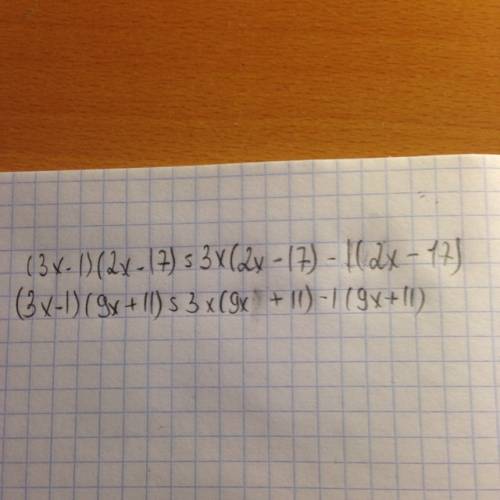 (3x-1)(2x-17)=3x(2x-17)-1(2x-17)
(3x-1)(9x+11)=3x(9x+11)-1(9x+11)